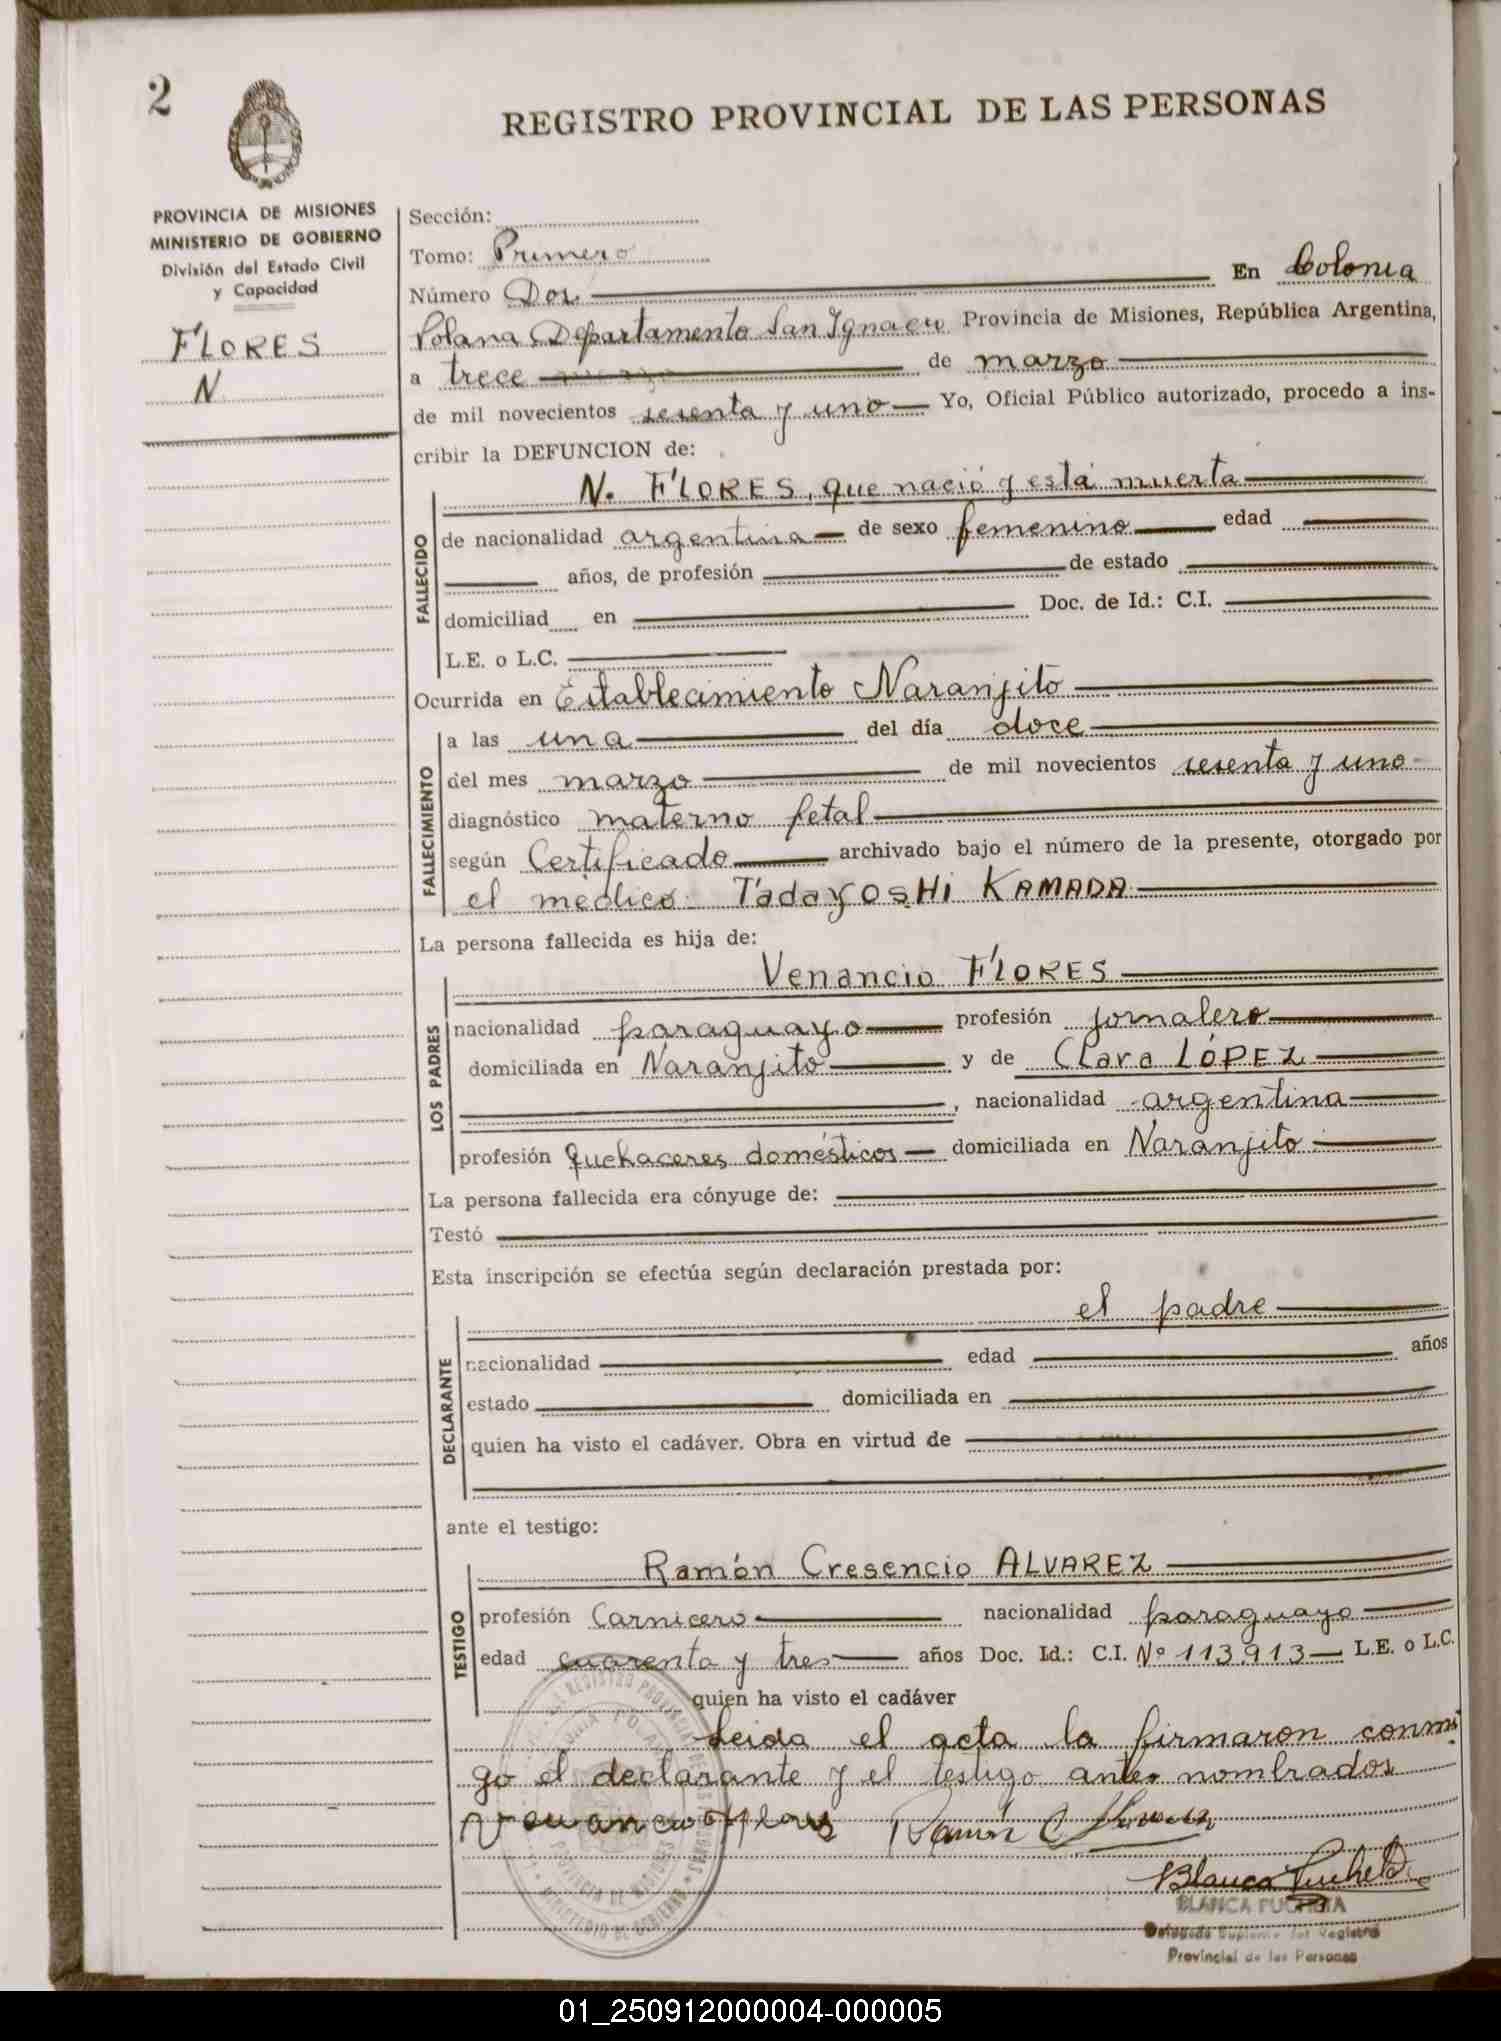 2
REGISTRO PROVINCIAL DE LAS PERSONAS
PROVINCIA DE MISIONES
MINISTERIO DE GOBIERNO
División del Estado Civil
y Capacidad
FLORES
N
Sección:
Tomo: Primero
Número Dos En Colonia
Polana Departamento San Ignacio Provincia de Misiones, República Argentina,
a trece de marzo
de mil novecientos sesenta y uno Yo, Oficial Público autorizado, procedo a ins-
cribir la DEFUNCION de:
N. FLORES, que nació y está muerta
FALLECIDO
de nacionalidad argentina de sexo femenino edad
años, de profesión de estado
domiciliad en Doc. de Id.: C.I.
L.E. o L.C.
Ocurrida en Establecimiento Naranjito
FALLECIMIENTO
a las una del día doce
del mes marzo de mil novecientos sesenta y uno
diagnóstico materno fetal
según Certificado archivado bajo el número de la presente, otorgado por
el médico: TadaYOSHi KAMADA
La persona fallecida es hija de:
LOS PADRES
Venancio FLORES
nacionalidad paraguayo profesión jornalero
domiciliada en Naranjito y de Clara LÓPEZ
, nacionalidad argentina
profesión quehaceres domésticos domiciliada en Naranjito
La persona fallecida era cónyuge de:
Testó
Esta inscripción se efectúa según declaración prestada por:
DECLARANTE
el padre
nacionalidad edad años
estado domiciliada en
quien ha visto el cadáver. Obra en virtud de
ante el testigo:
TESTIGO
Ramón Cresencio ALVAREZ
profesión Carnicero nacionalidad paraguayo
edad cuarenta y tres años Doc. Id.: C.I. Nº 113.913 L.E. o L.C.
quien ha visto el cadáver
Leida el acta la firmaron conmi
go el declarante y el testigo antes nombrados
Ramón C
Blanca
BLANCA
Delegada Suplente del Registro
Provincial de las Personas
REGISTRO PROVINCIAL DE LAS PERSONAS
PROVINCIA DE MISIONES
MINISTERIO DE GOBIERNO
01_250912000004-000005